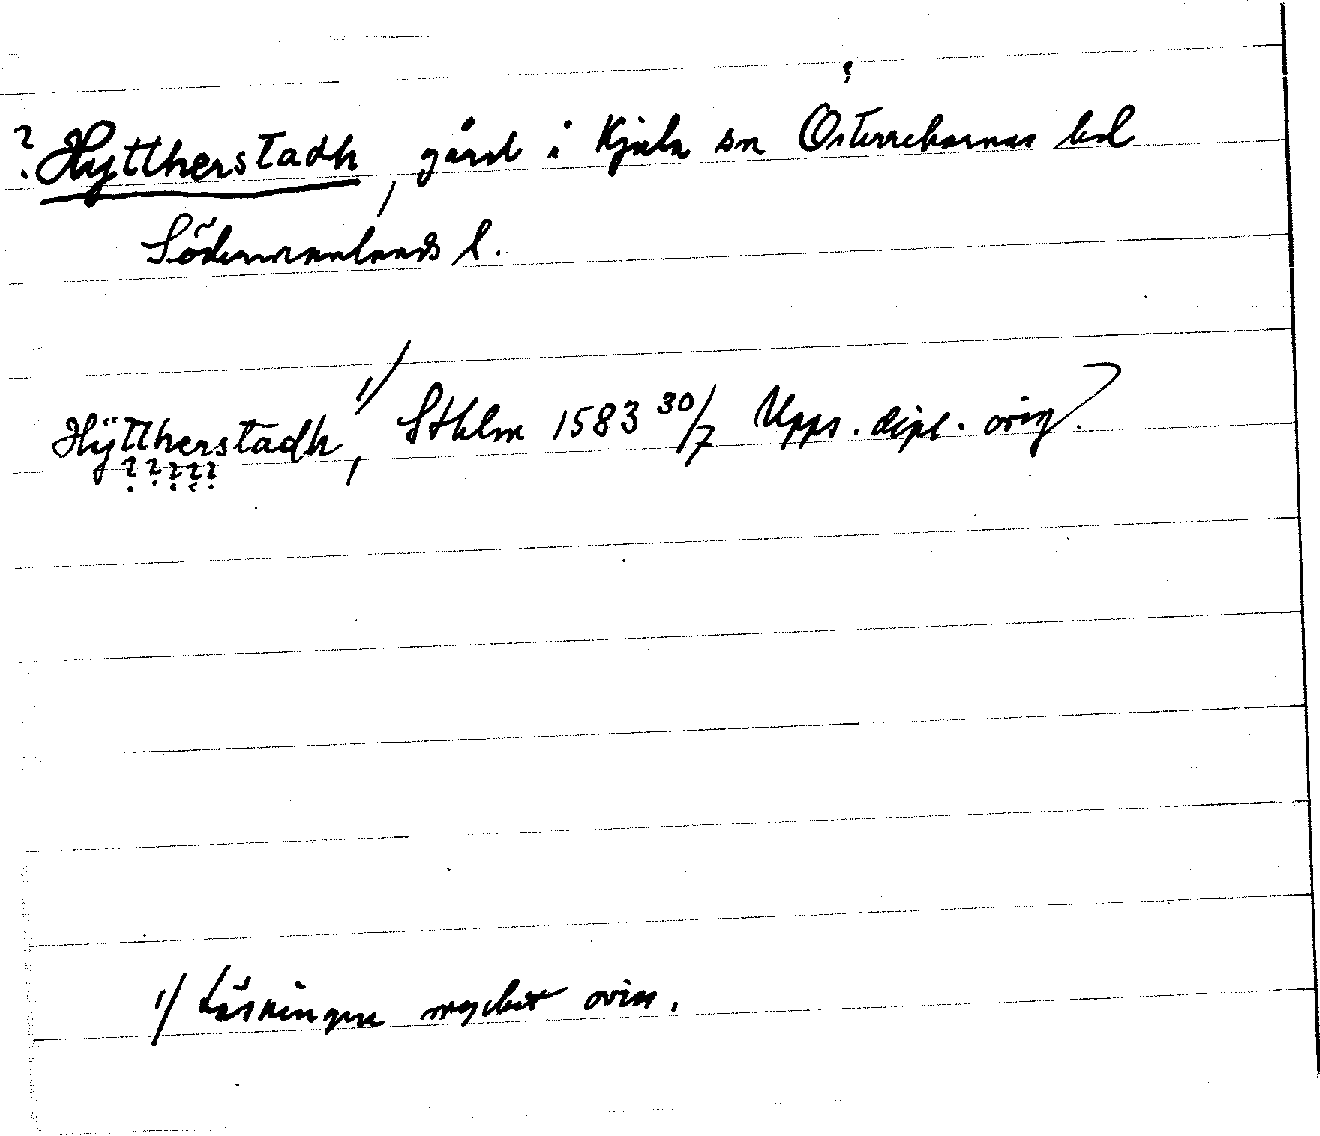 ? Hyttherstadh, gård i Kjula sn Österrekarnas hd
Södermanlands l.
Hÿttherstadh, 1/ Sthlm 1583 30/7 Upps. dipl. orig.
? ? ? ? ?
1/ Läsningen mycket oviss.